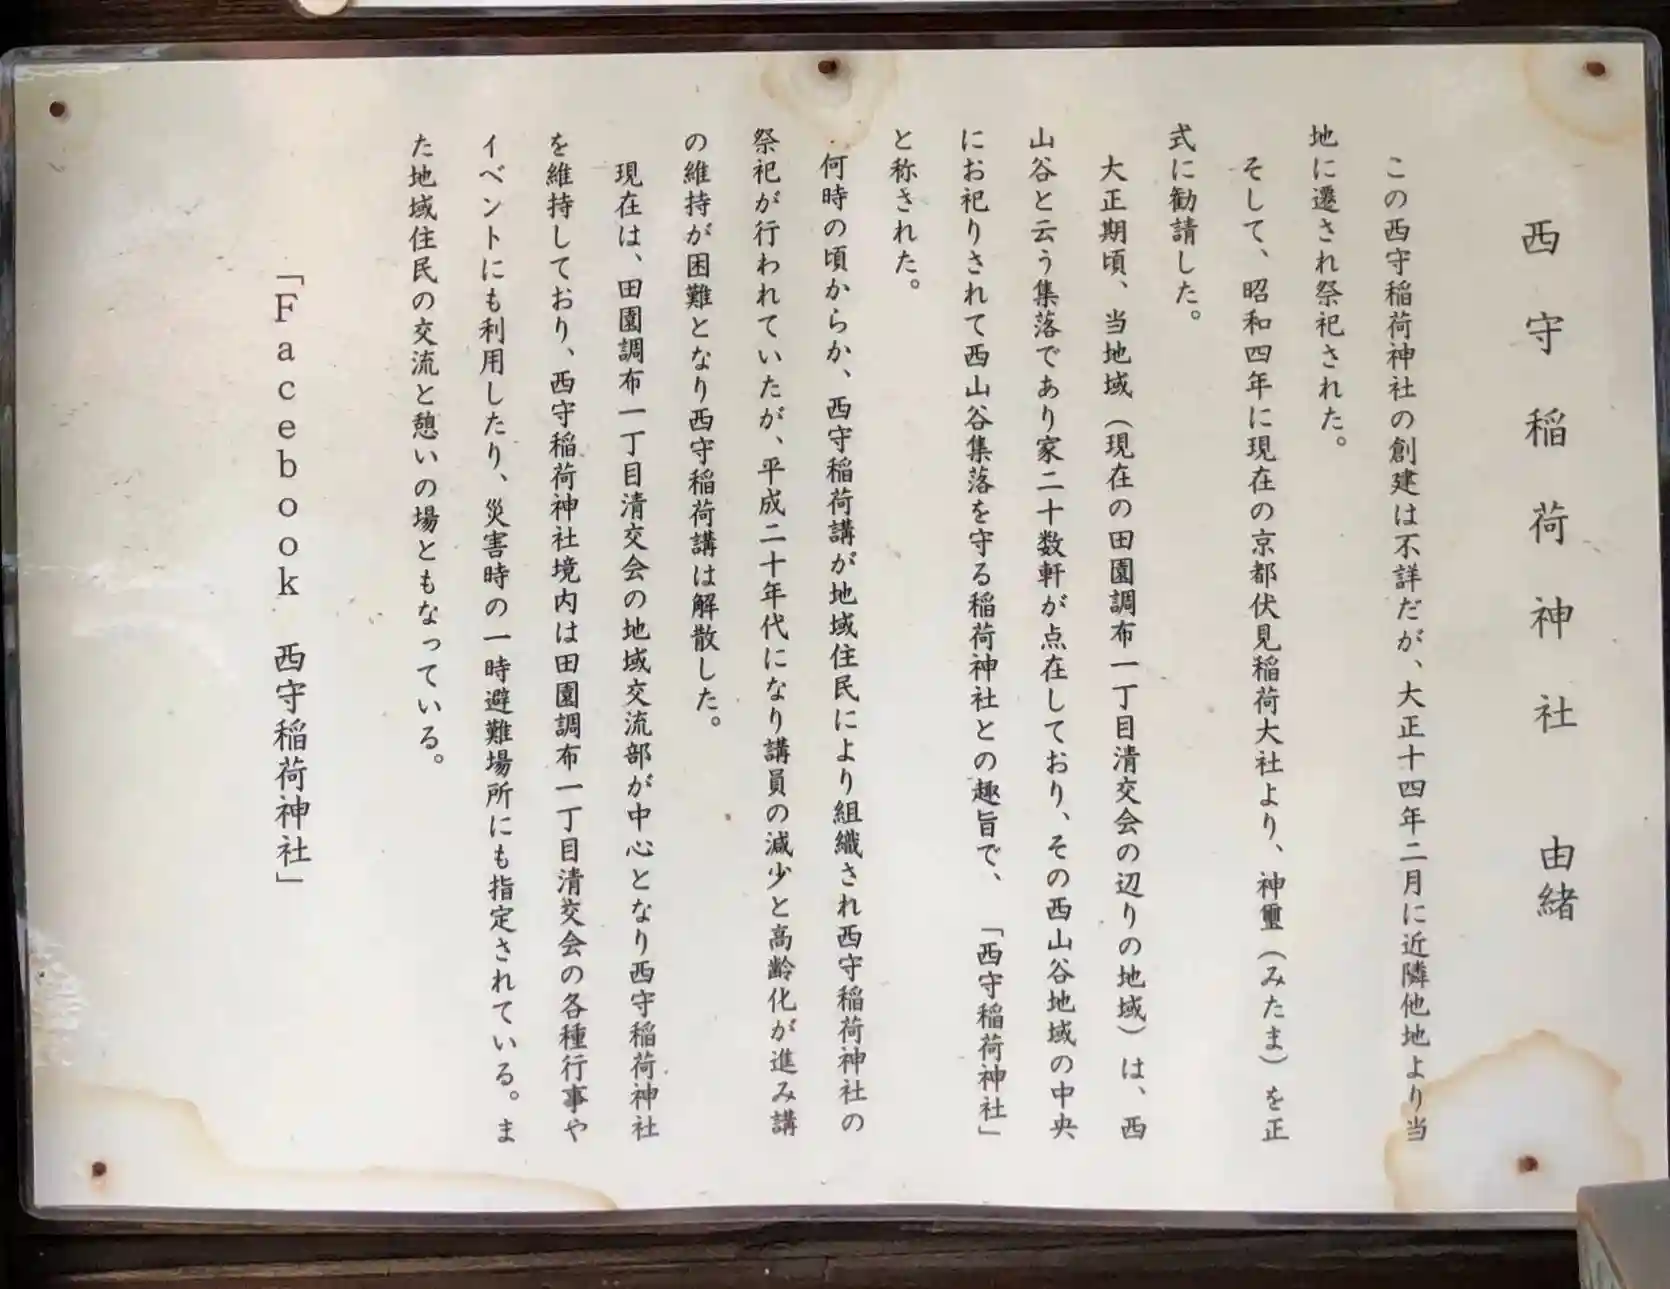 西守稲荷神社 由緒
この西守稲荷神社の創建は不詳だが、大正十四年二月に近隣他地より当
地に遷され祭祀された。
そして、昭和四年に現在の京都伏見稲荷大社より、神璽(みたま)を正
式に勧請した。
大正期頃、当地域(現在の田園調布一丁目清交会の辺りの地域)は、西
山谷と云う集落であり家二十数軒が点在しており、その西山谷地域の中央
にお祀りされて西山谷集落を守る稲荷神社との趣旨で、「西守稲荷神社」
と称された。
何時の頃からか、西守稲荷講が地域住民により組織され西守稲荷神社の
祭祀が行われていたが、平成二十年代になり講員の減少と高齢化が進み講
の維持が困難となり西守稲荷講は解散した。
現在は、田園調布一丁目清交会の地域交流部が中心となり西守稲荷神社
を維持しており、西守稲荷神社境内は田園調布一丁目清交会の各種行事や
イベントにも利用したり、災害時の一時避難場所にも指定されている。ま
た地域住民の交流と憩いの場ともなっている。
「Facebook 西守稲荷神社」